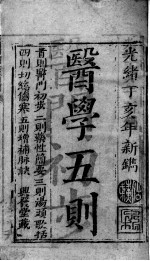 光緒丁亥年新鐫
醫學五則
首則醫門初步二則藥性簡要三則湯頭歌括
四則切總傷寒五則增補脈訣 堂藏